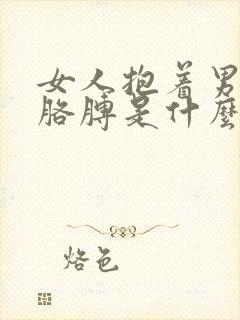 女人抱着男
胳膊是什麼
烙色